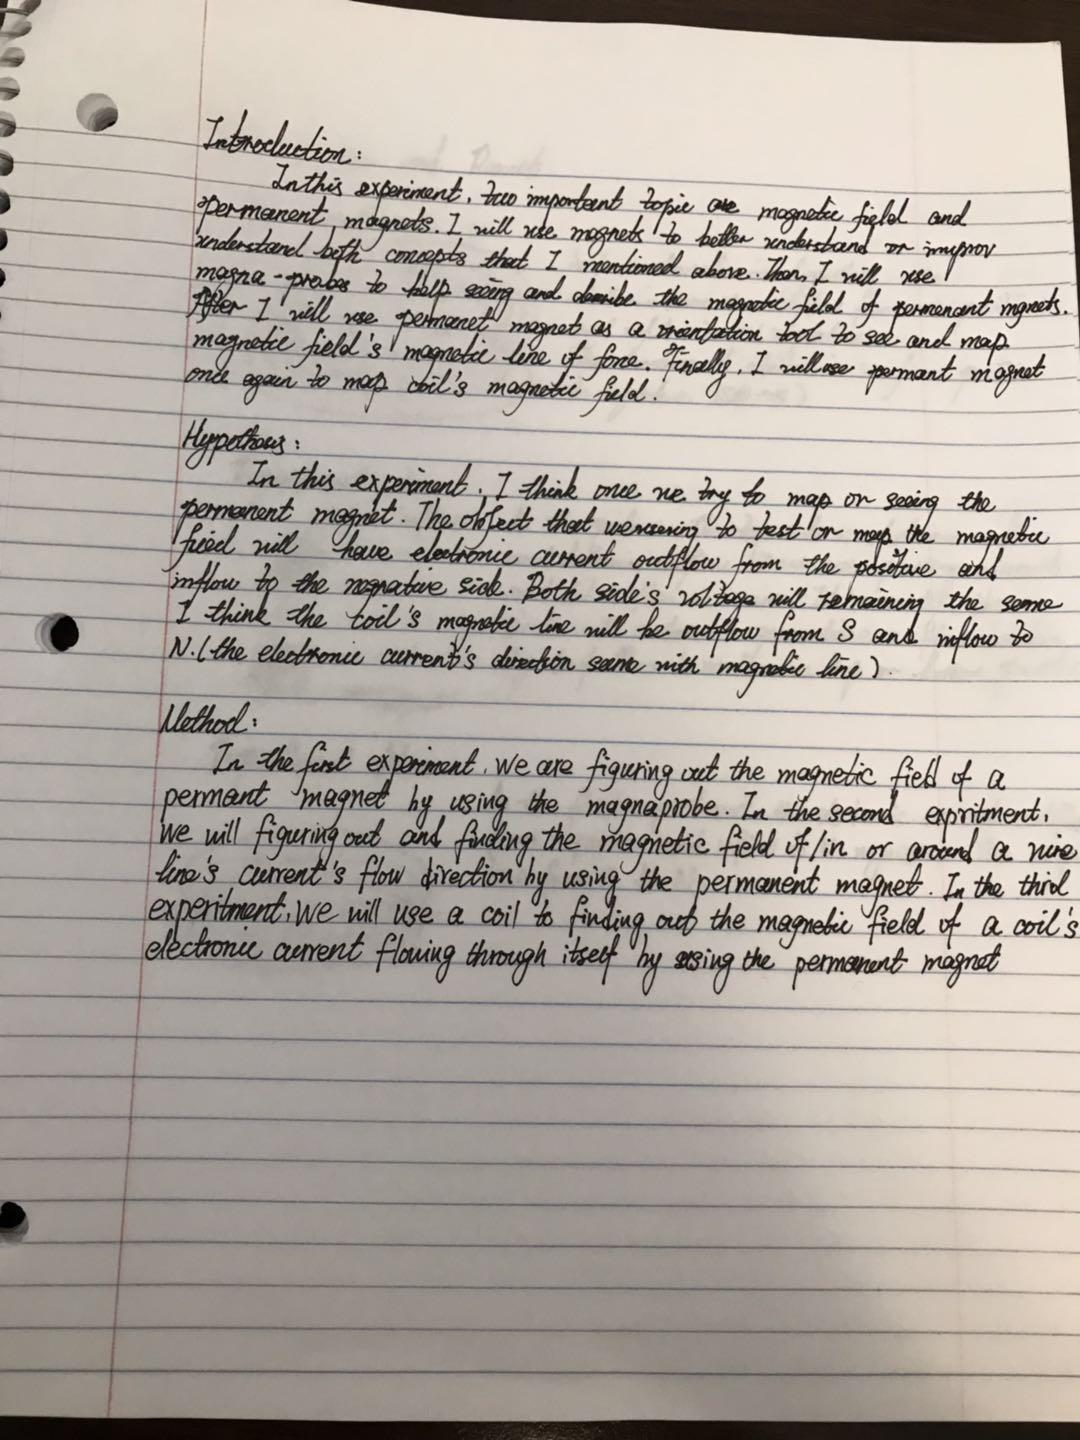 Introduction:
In this experiment, two important topic are magnetic field and
permanent magnets. I will use magnets to better understand or improv
understand both concepts that I mentioned above. Then, I will use
magna-probes to help seeing and describe the magnetic field of permenent mgnets.
After I will use permanet magnet as a orientation tool to see and map
magnetic field's magnetic line of force. Finally, I will use permant magnet
once again to map coil's magnetic field.
Hypothesis:
In this experiment, I think once we try to map or seeing the
permanent magnet. The object that we using to test or map the magnetic
field will have electronic current outflow from the positive and
inflow to the negnative side. Both side's voltage will remaining the same
I think the coil's magnetic line will be outflow from S and inflow to
N.(the electronic current's direction same with magnetic line).
Method:
In the first experiment, we are figuring out the magnetic field of a
permant magnet by using the magnaprobe. In the second expiritment,
we will figuring out and finding the magnetic field of/in or around a wire
line's current's flow direction by using the permanent magnet. In the third
experitment, we will use a coil to finding out the magnetic field of a coil's
electronic current flowing through itself by using the permanent magnet